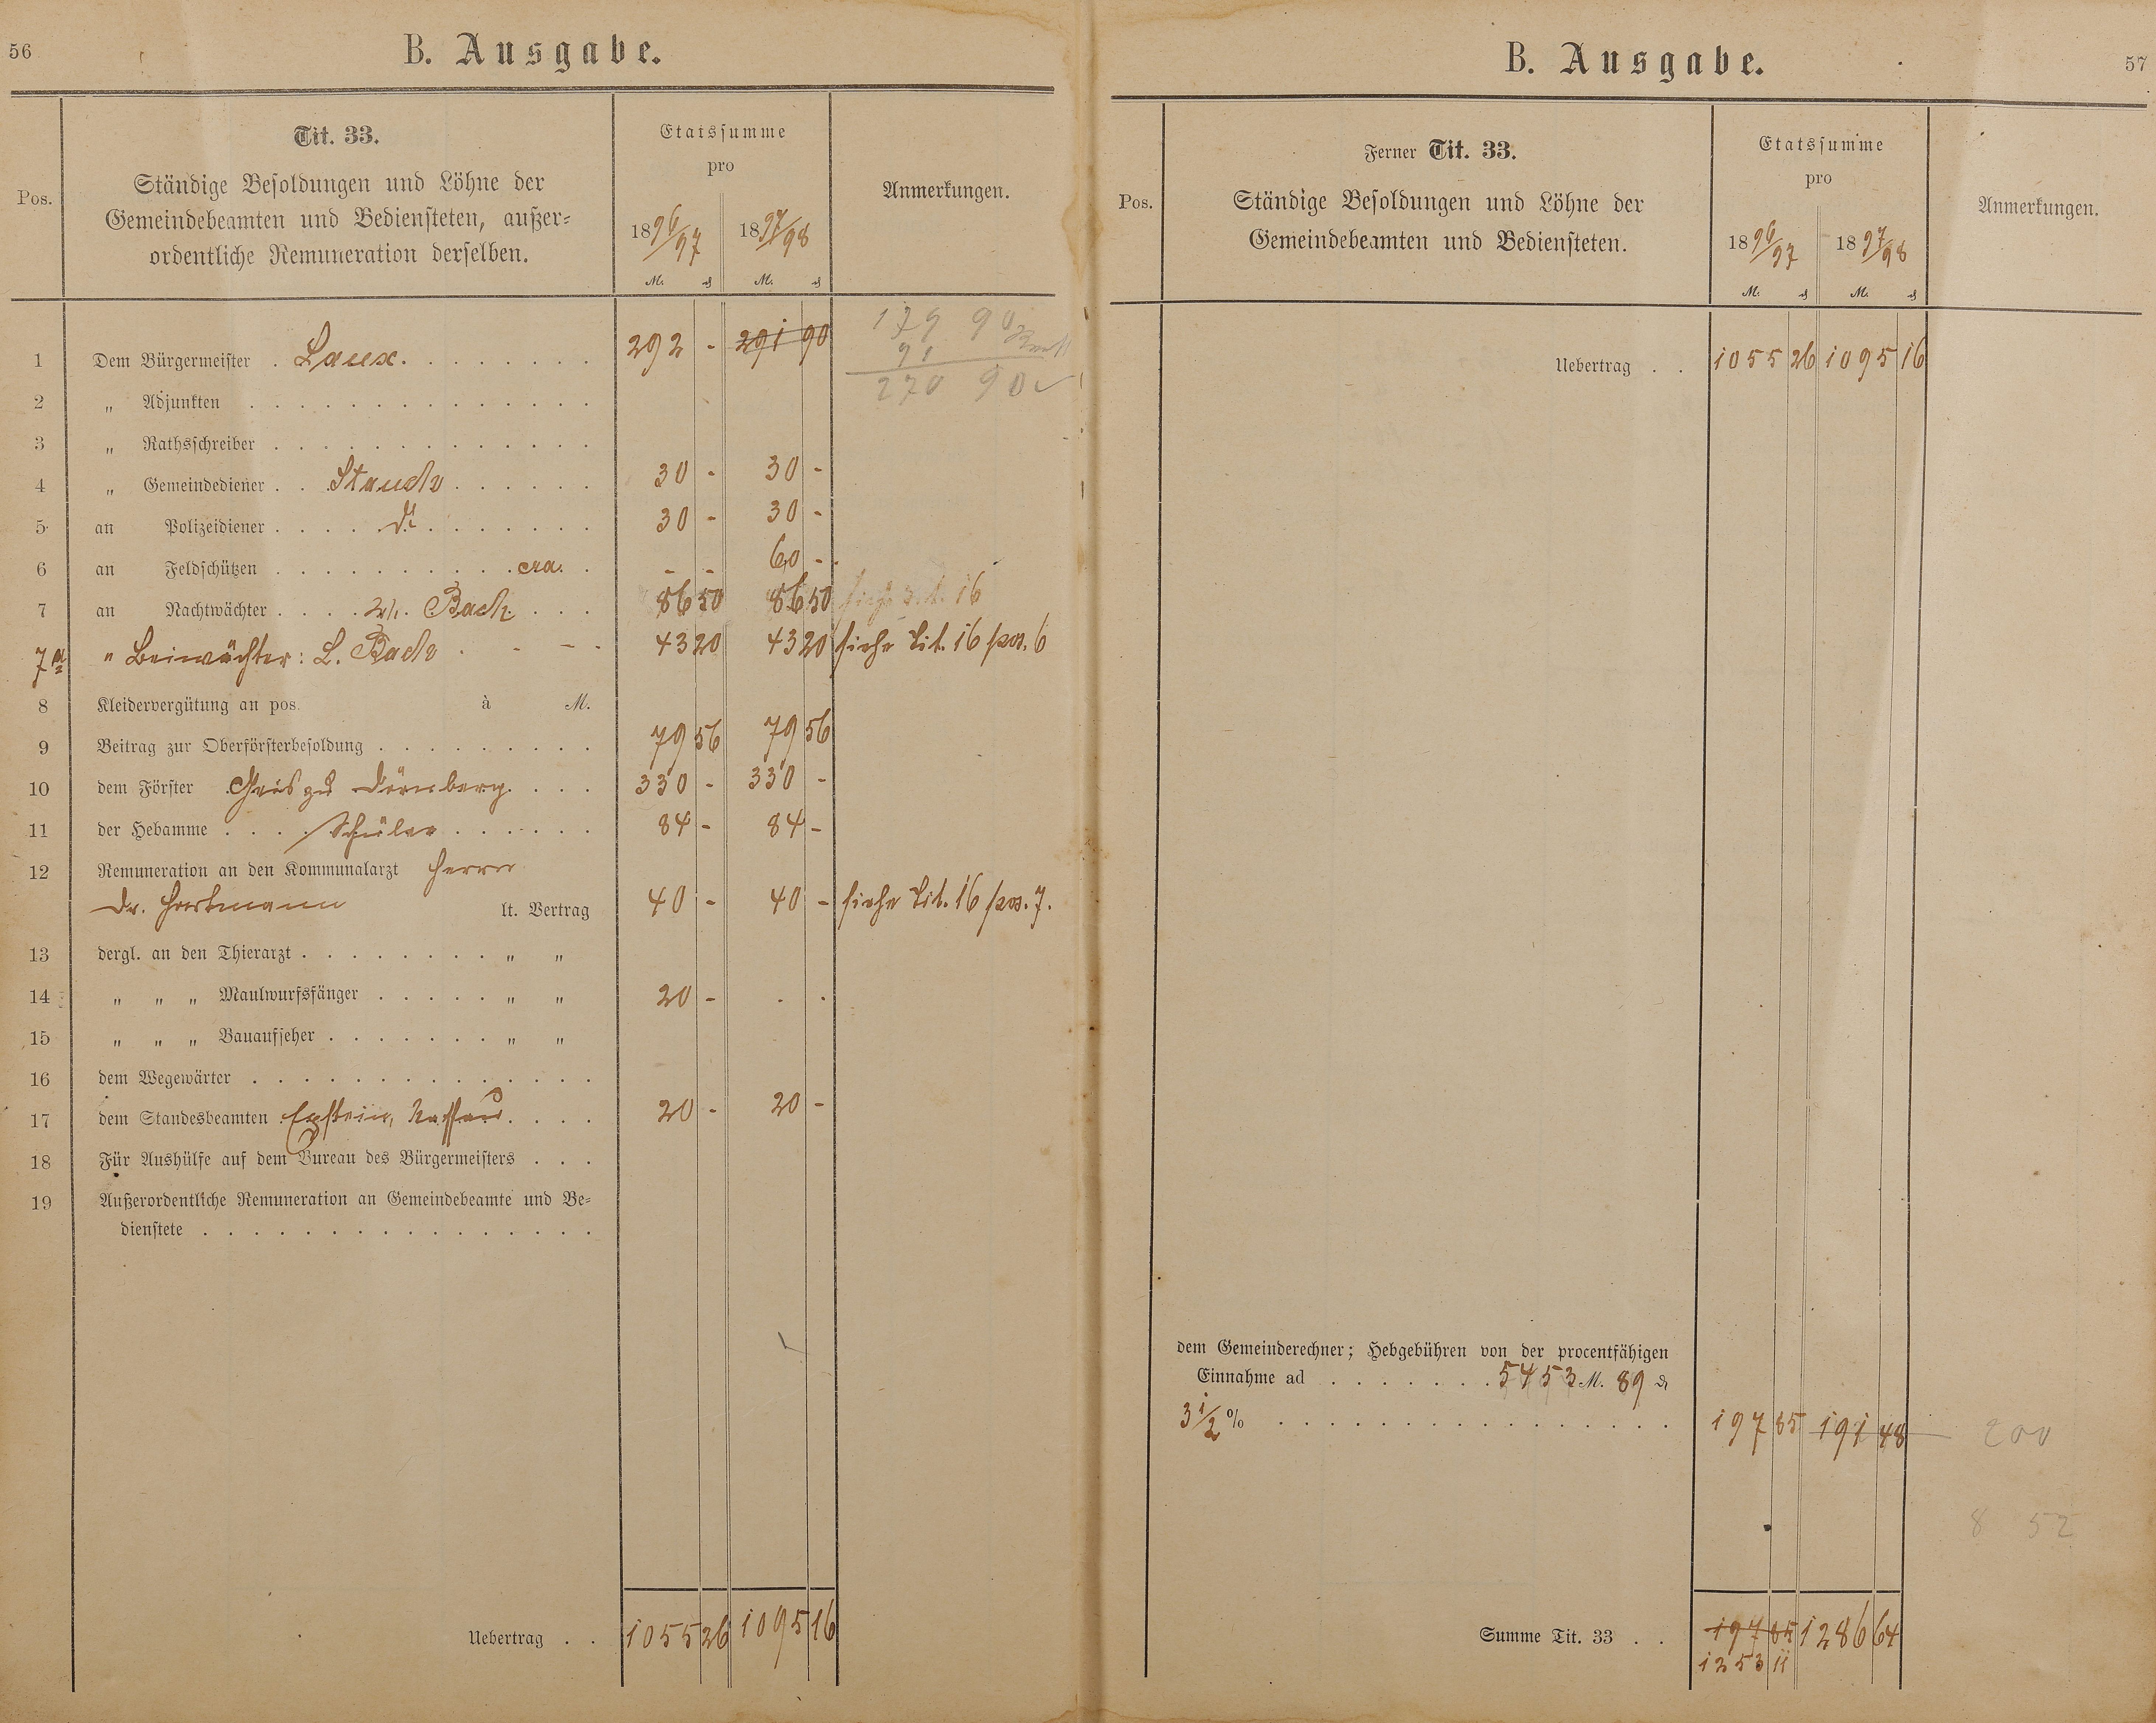 56
B. Ausgabe.
Pos.
Tit. 33.
Ständige Besoldungen und Löhne der
Gemeindebeamten und Bediensteten, außer-
ordentliche Remuneration derselben.
Etatssumme
pro
1896/97 1897/98
M. ₰ M. ₰
Anmerkungen.
1 Dem Bürgermeister . Laux. 292 - 291 90
179 90
91
270 90
2 " Adjunkten
3 " Rathsschreiber
4 " Gemeindediener . . Stauch 30 - 30 -
5 an Polizeidiener . . . . do. 30 - 30 -
6 an Feldschützen . . . . cra. - - 60 -
7 an Nachtwächter . . . . Bach 86 50 86 50 siehe Tit. 16
7a " Beiwächter: L. Bach 43 20 43 20 siehe Tit. 16 pos. 6
8 Kleidervergütung an pos. à M.
9 Beitrag zur Oberförsterbesoldung 79 56 79 56
10 dem Förster Geis zu Dörnberg 330 - 330 -
11 der Hebamme . . . . Schüler 84 - 84 -
12 Remuneration an den Kommunalarzt Herrn
Dr. Hartmann lt. Vertrag 40 - 40 - siehe Tit. 16 pos. 7.
13 dergl. an den Thierarzt . . . . " "
14 " " " Maulwurfsfänger . . . . " " 20 - . .
15 " " " Bauaufseher . . . . " "
16 dem Wegewärter
17 dem Standesbeamten Epstein, Nassau 20 - 20 -
18 Für Aushülfe auf dem Bureau des Bürgermeisters . . .
19 Außerordentliche Remuneration an Gemeindebeamte und Be-
dienstete
Uebertrag . . 1055 26 1095 16
B. Ausgabe.
57
Pos.
Ferner Tit. 33.
Ständige Besoldungen und Löhne der
Gemeindebeamten und Bediensteten.
Etatssumme
pro
1896/97 1897/98
M. ₰ M. ₰
Anmerkungen.
Uebertrag . . 1055 26 1095 16
dem Gemeinderechner; Hebgebühren von der procentfähigen
Einnahme ad . . . . 5453 M. 89 ₰
3 1/2 % 197 85 191 48 200
8 52
Summe Tit. 33 . . 197 85 1286 64
1253 11